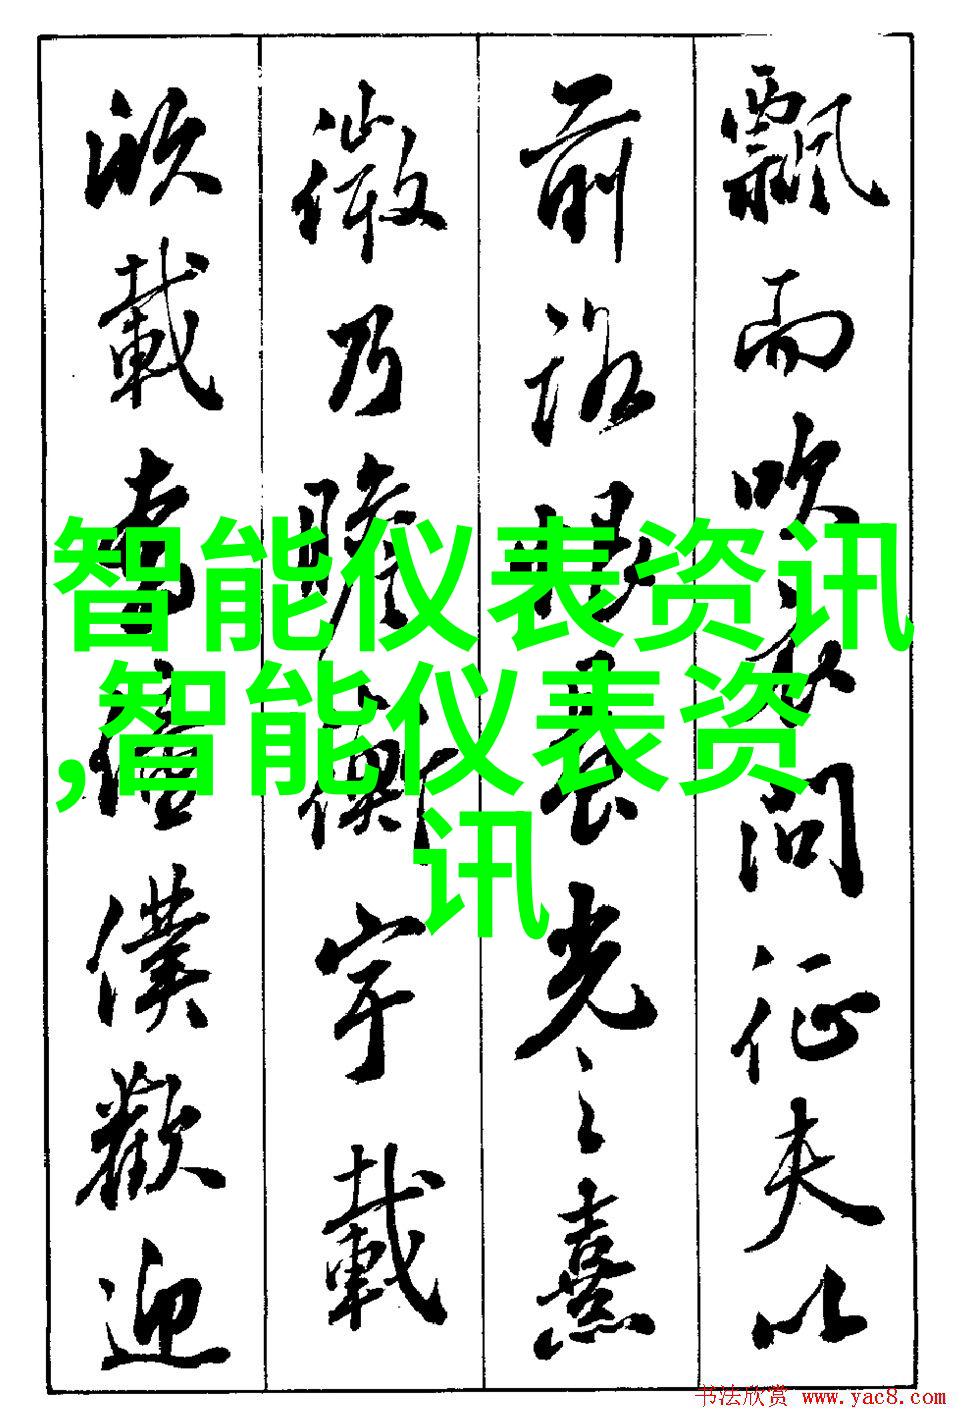 飄而吹衣問征夫以
前路恨晨光之熹
微乃瞻衡宇載
欣載奔僮僕歡迎
智能仪表资讯
,智能仪表资
讯
书法欣赏 www.yac8.com